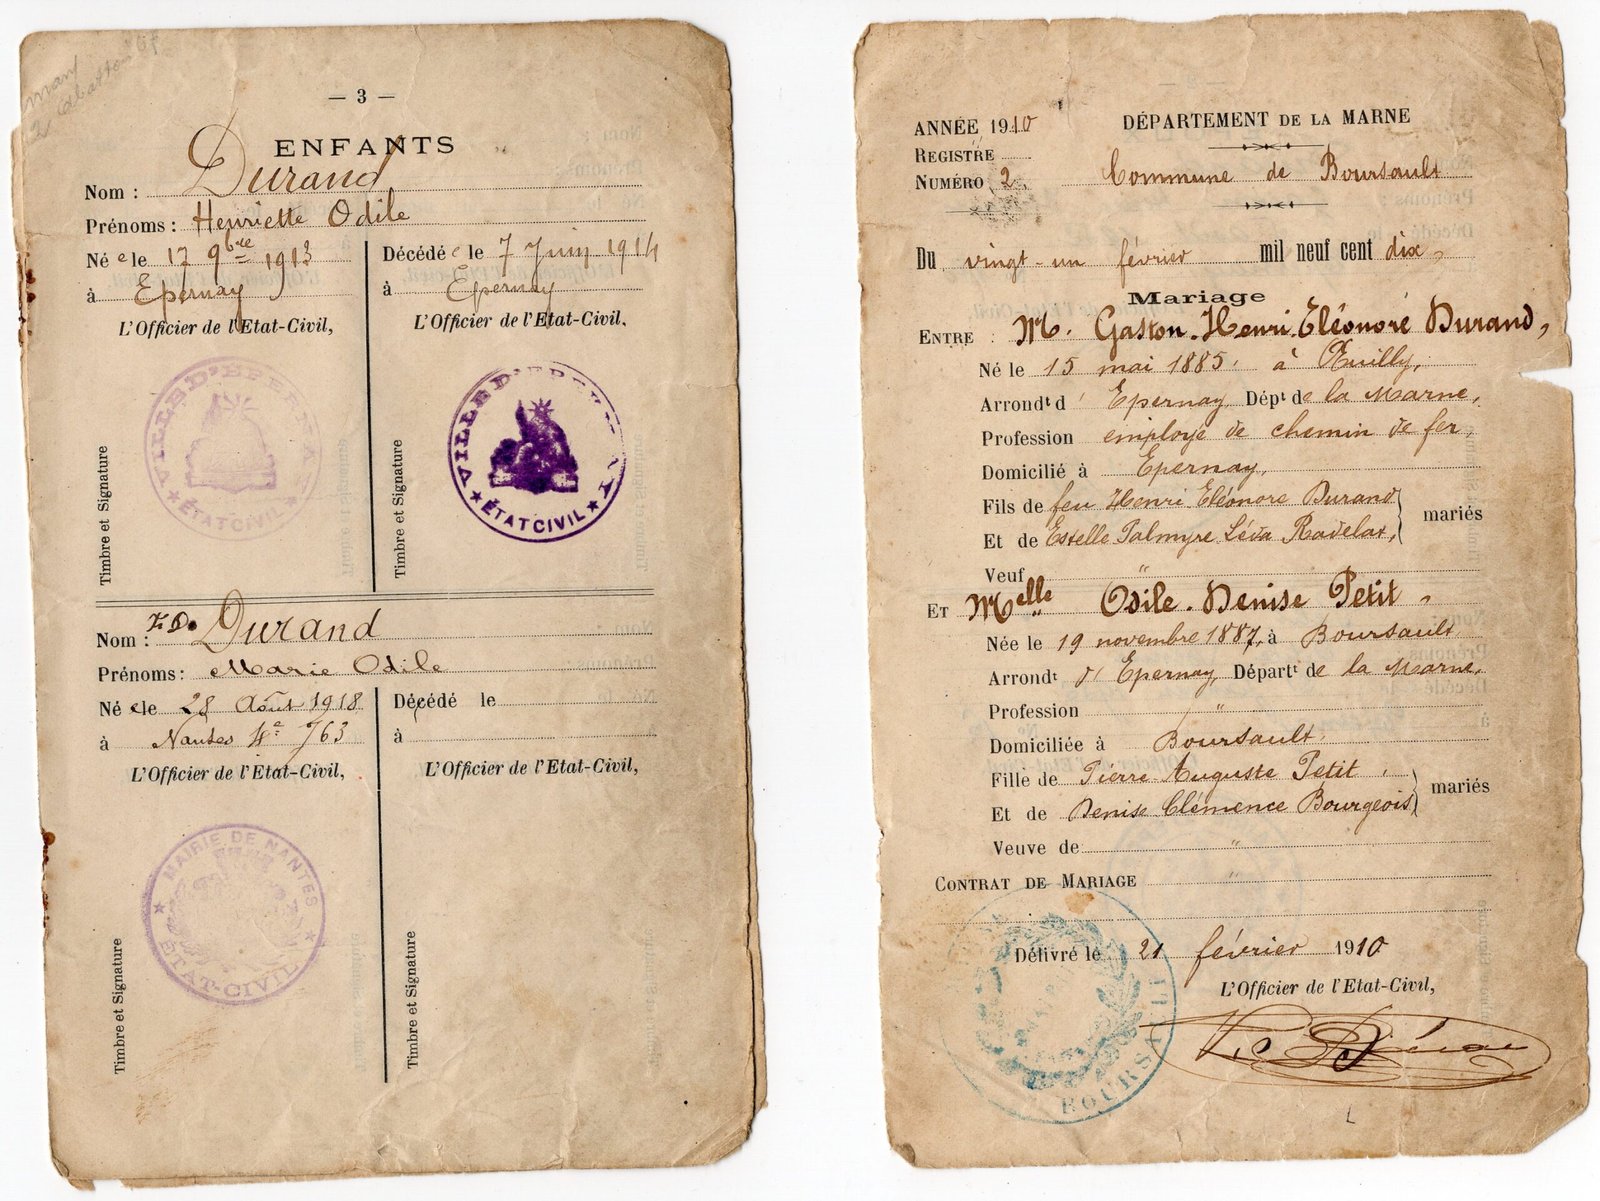 — 3 —
ENFANTS
Nom : Durand
Prénoms : Henriette Odile
Né e le 17 9bre 1913
à Epernay
L'Officier de l'Etat-Civil,
Timbre et Signature
VILLE D'EPERNAY
ÉTAT CIVIL
Décédé e le 7 Juin 1914
à Epernay
L'Officier de l'Etat-Civil,
Timbre et Signature
VILLE D'EPERNAY
ÉTAT CIVIL
Nom : Durand
Prénoms : Marie Odile
Né e le 28 Août 1918
à Nantes 4e 763
L'Officier de l'Etat-Civil,
Timbre et Signature
MAIRIE DE NANTES
ÉTAT-CIVIL
Décédé le
à
L'Officier de l'Etat-Civil,
Timbre et Signature
ANNÉE 1910
REGISTRE
NUMÉRO 2
DÉPARTEMENT DE LA MARNE
Commune de Boursault
Du vingt-un février mil neuf cent dix,
Mariage
ENTRE M. Gaston-Henri-Eléonore Durand,
Né le 15 mai 1885, à Œuilly,
Arrondt d' Epernay, Dépt de la Marne,
Profession employé de chemin de fer,
Domicilié à Epernay,
Fils de feu Henri Eléonore Durand
Et de Estelle Palmyre Léda Radelat, mariés
Veuf "
ET Melle Odile-Denise Petit,
Née le 19 novembre 1887, à Boursault
Arrondt d' Epernay, Départt de la Marne,
Profession "
Domiciliée à Boursault,
Fille de Pierre Auguste Petit,
Et de Denise Clémence Bourgeois mariés
Veuve de "
CONTRAT DE MARIAGE "
Délivré le 21 février 1910
L'Officier de l'Etat-Civil,
BOURSAULT